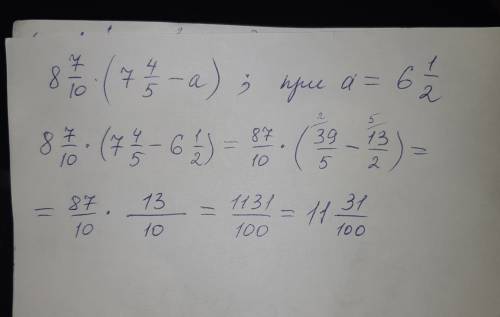 8 7/10 · (7 4/5 − a) ; при a = 6 1/2
8 7/10 · (7 4/5 − 6 1/2) = 87/10 · (39/5 ²⁄ − 13/2 ⁵⁄) =
= 87/10 · 13/10 = 1131/100 = 11 31/100